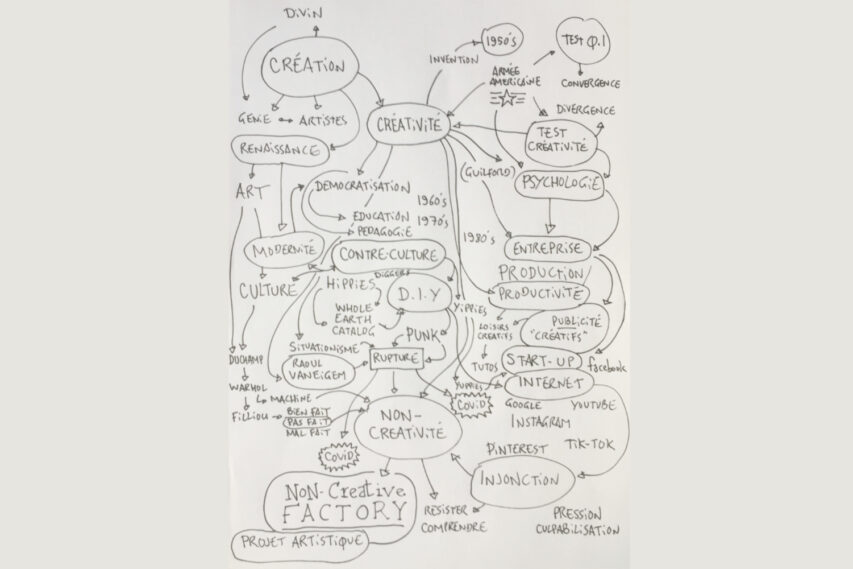 DIVIN
CRÉATION
GÉNIE
ARTISTES
RENAISSANCE
ART
MODERNITÉ
CULTURE
INVENTION
1950's
ARMÉE
AMERICAINE
TEST Q.I
CONVERGENCE
DIVERGENCE
CRÉATIVITÉ
TEST
CRÉATIVITÉ
(GUILFORD)
PSYCHOLOGIE
DÉMOCRATISATION
1960's
EDUCATION 1970's
PÉDAGOGIE
1980's
CONTRE-CULTURE
DIGGERS
HIPPIES
D.I.Y
WHOLE
EARTH
CATALOG
YIPPIES
PUNK
ENTREPRISE
PRODUCTION
PRODUCTIVITÉ
PUBLICITÉ
"CRÉATIFS"
LOISIRS
CRÉATIFS
TUTOS
START-UP
facebook
INTERNET
GOOGLE
YOUTUBE
INSTAGRAM
PINTEREST
TIK-TOK
SITUATIONISME
RAOUL
VANEIGEM
RUPTURE
YUPPIES
COVID
DUCHAMP
WARHOL
MACHINE
FILLIOU
BIEN FAIT
PAS FAIT
MAL FAIT
NON-
CREATIVITÉ
COVID
INJONCTION
PRESSION
CULPABILISATION
RESISTER
COMPRENDRE
NoN-Creative
FACTORY
PROJET ARTISTIQUE